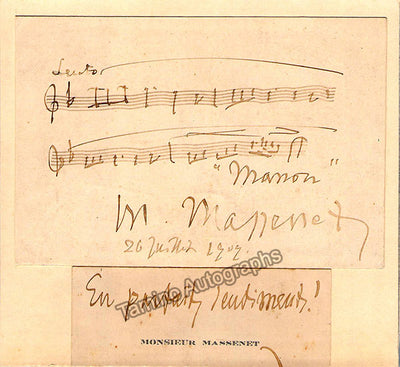 Lento
"Manon"
M. Massenet
26 Juillet
Tamino Autographs
En parfaits sentiments!
MONSIEUR MASSENET